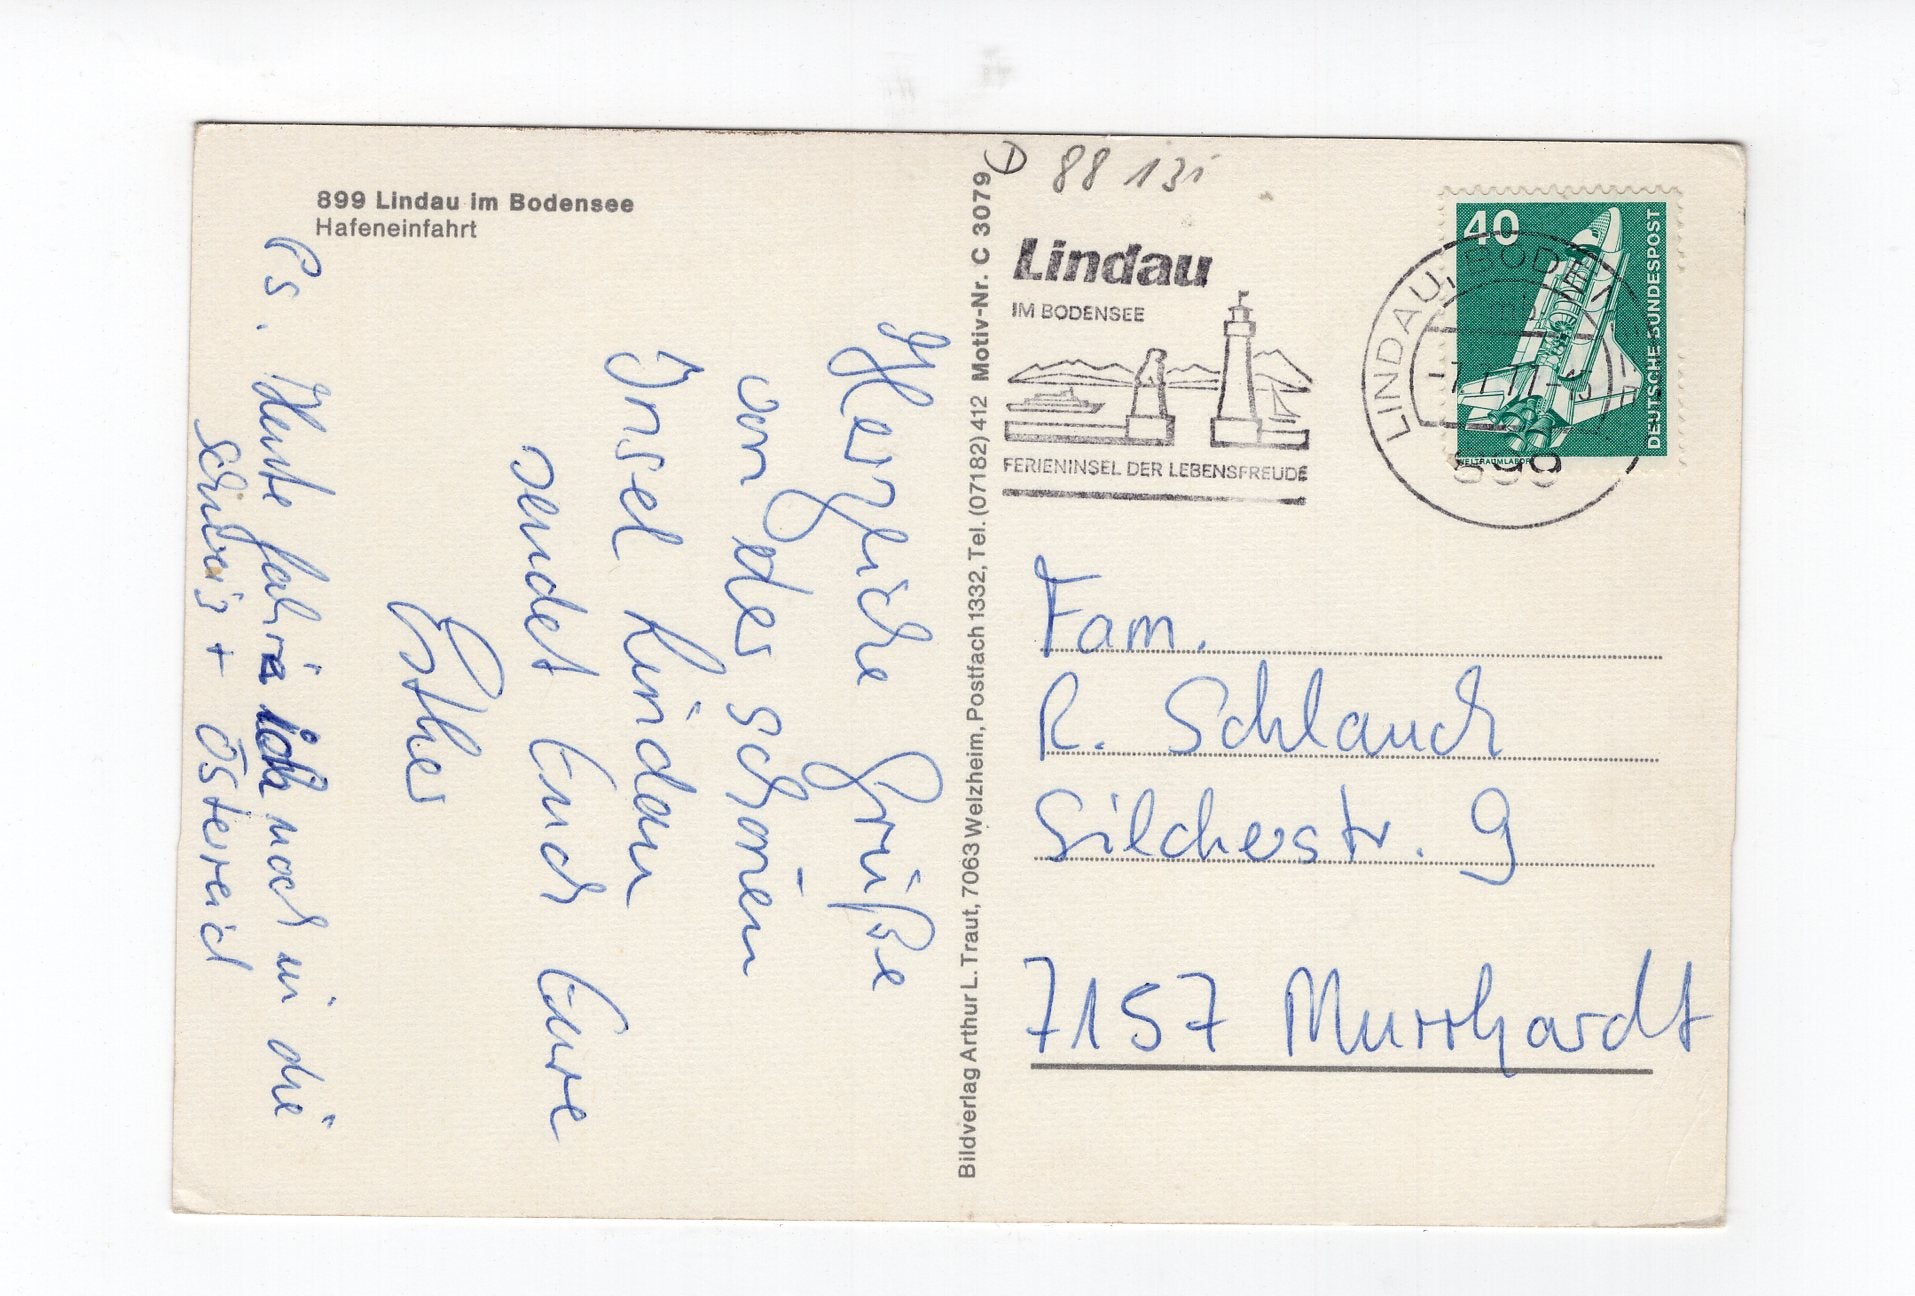 899 Lindau im Bodensee
Hafeneinfahrt
Herzliche Grüße
von der schönen
Insel Lindau
sendet Euch Eure
Esther
Ps. Heute fahre ich noch in die
Schweiz + Österreich
Bildverlag Arthur L. Traut, 7063 Welzheim, Postfach 1332, Tel. (07182) 412 Motiv-Nr. C 3079
D 88 131
Lindau
IM BODENSEE
FERIENINSEL DER LEBENSFREUDE
LINDAU, BODENSEE
899
40
DEUTSCHE BUNDESPOST
WELTRAUMLABOR
Fam.
R. Schlauch
Silcherstr. 9
7157 Murrhardt